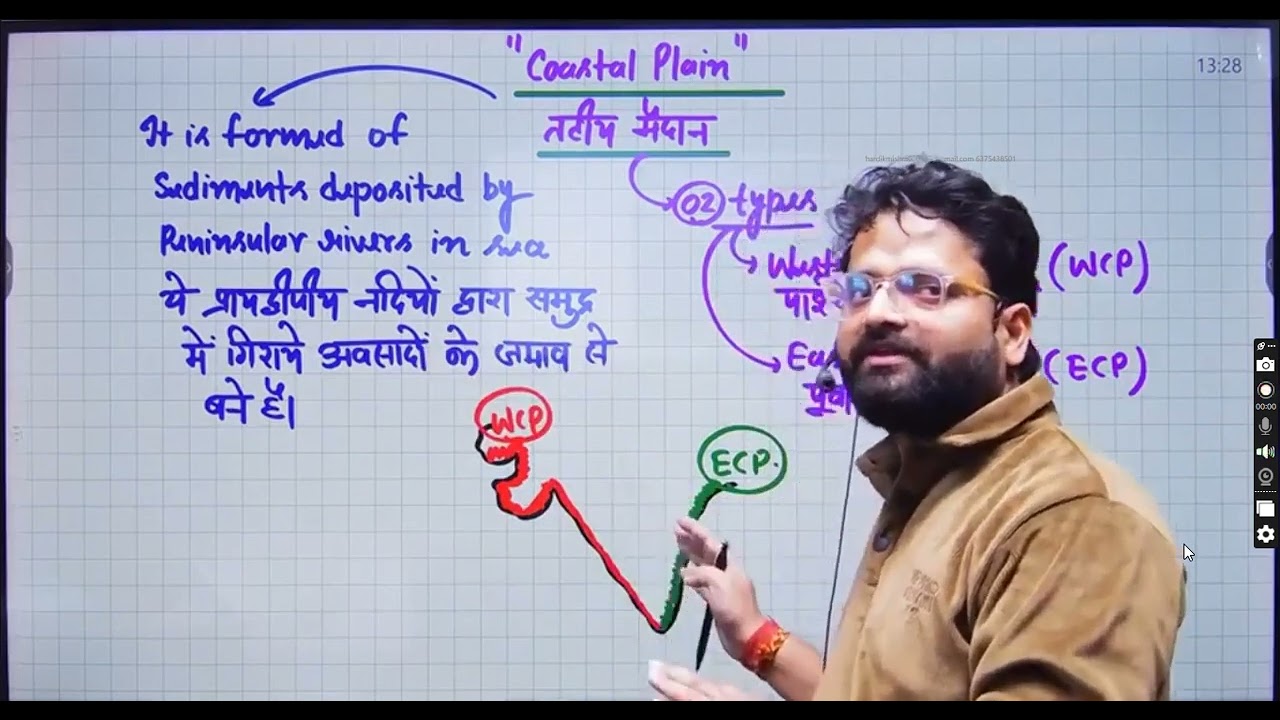 "Coastal Plain"
तटीय मैदान
13:28
It is formed of
Sediments deposited by
Peninsular rivers in sea
ये प्रायद्वीपीय नदियों द्वारा समुद्र
में गिराये अवसादों के जमाव से
बने है।
02 types
West
(WCP)
पाश्
Eas
(ECP)
पूर्वी
WCP
ECP.
00:00